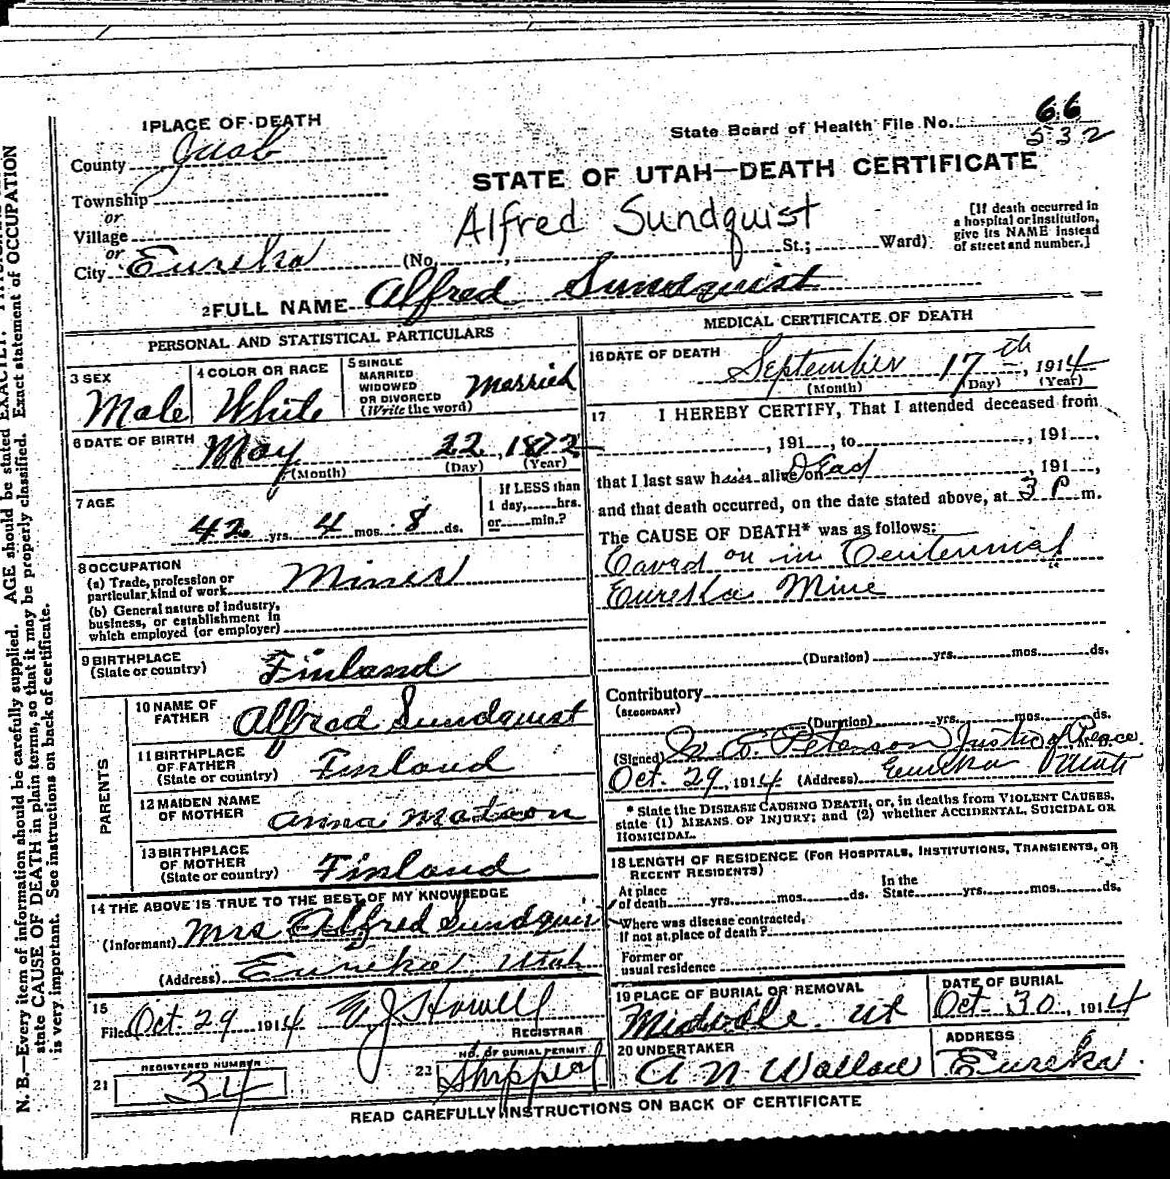 66
State Board of Health File No. 532
1 PLACE OF DEATH
County Juab
Township
or
Village
or
City Eureka
STATE OF UTAH—DEATH CERTIFICATE
Alfred Sundquist
(No. , St.; Ward)
[If death occurred in
a hospital or institution,
give its NAME instead
of street and number.]
2 FULL NAME Alfred Sundquist
PERSONAL AND STATISTICAL PARTICULARS
3 SEX
Male
4 COLOR OR RACE
White
5 SINGLE
MARRIED
WIDOWED
OR DIVORCED
(Write the word)
Married
6 DATE OF BIRTH
May 22, 1872
(Month) (Day) (Year)
7 AGE
42 yrs. 4 mos. 8 ds.
If LESS than
1 day, hrs.
or min.?
8 OCCUPATION
(a) Trade, profession or
particular kind of work Miner
(b) General nature of industry,
business, or establishment in
which employed (or employer)
9 BIRTHPLACE
(State or country)
Finland
PARENTS
10 NAME OF
FATHER
Alfred Sundquist
11 BIRTHPLACE
OF FATHER
(State or country)
Finland
12 MAIDEN NAME
OF MOTHER
Anna Matson
13 BIRTHPLACE
OF MOTHER
(State or country)
Finland
14 THE ABOVE IS TRUE TO THE BEST OF MY KNOWLEDGE
(Informant) Mrs Alfred Sundquist
(Address) Eureka Utah
15
Filed Oct. 29 1914 Howell
REGISTRAR
21 REGISTERED NUMBER
34
22 NO. OF BURIAL PERMIT
Shipped
MEDICAL CERTIFICATE OF DEATH
16 DATE OF DEATH
September 17th, 1914
(Month) (Day) (Year)
17 I HEREBY CERTIFY, That I attended deceased from
, 191 , to , 191 ,
that I last saw him alive on Dead , 191 ,
and that death occurred, on the date stated above, at 3 P m.
The CAUSE OF DEATH* was as follows:
Caved on in Centennial
Eureka Mine
(Duration) yrs. mos. ds.
Contributory
(SECONDARY)
(Duration) yrs. mos. ds.
(Signed) Peterson Justic of Peace M. D.
Oct. 29, 1914 (Address) Eureka
* State the DISEASE CAUSING DEATH, or, in deaths from VIOLENT CAUSES,
state (1) MEANS OF INJURY; and (2) whether ACCIDENTAL, SUICIDAL OR
HOMICIDAL.
18 LENGTH OF RESIDENCE (FOR HOSPITALS, INSTITUTIONS, TRANSIENTS, OR
RECENT RESIDENTS)
At place
of death yrs. mos. ds.
In the
State yrs. mos. ds.
Where was disease contracted,
if not at place of death?
Former or
usual residence
19 PLACE OF BURIAL OR REMOVAL
Midvale ut
DATE OF BURIAL
Oct. 30, 1914
20 UNDERTAKER
A N Wallace
ADDRESS
Eureka.
READ CAREFULLY INSTRUCTIONS ON BACK OF CERTIFICATE
N. B.—Every item of information should be carefully supplied. AGE should be stated EXACTLY.
state CAUSE OF DEATH in plain terms, so that it may be properly classified. Exact statement of OCCUPATION
is very important. See instructions on back of certificate.